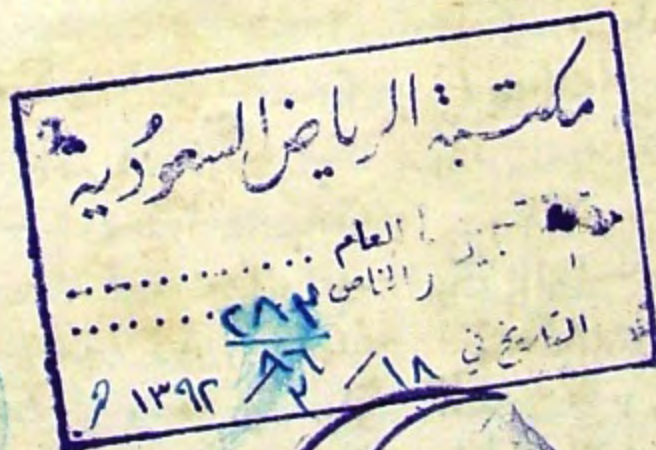 مكتبة الرياض السعودية
العام ............
والخاص ........ ٢٨٣
٨٦
التاريخ في ١٨ / ٣ / ١٣٩٢ هـ